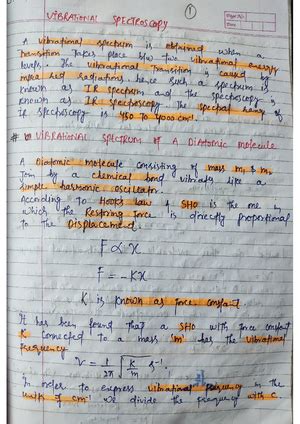 ①
Page No.
Date
VIBRATIONAL SPECTROSCOPY
A vibrational spectrum is obtained when a
transition takes place b/w two vibrational energy
levels. The vibrational transition is caused by
infra red radiations hence such a spectrum is
known as IR spectrum and the spectroscopy is
known as IR spectroscopy. The spectral range of
IR spectroscopy is 450 to 4000 cm⁻¹.
# VIBRATIONAL SPECTRUM OF A DIATOMIC MOLECULE
A Diatomic molecule consisting of mass m₁ & m₂
Join by a chemical bond vibrates like a
simple harmonic oscillator.
According to Hooks law a SHO is the one in
which the Restoring force is directly proportional
to the Displacement.
F ∝ x
F = -Kx
K is known as force constant
It has been found that a SHO with force constant
K connected to a mass 'm' has the vibrational
frequency
ν = 1/2π √K/m s⁻¹.
In order to express vibrational frequency in the
unit of cm⁻¹ we divide the frequency with c.